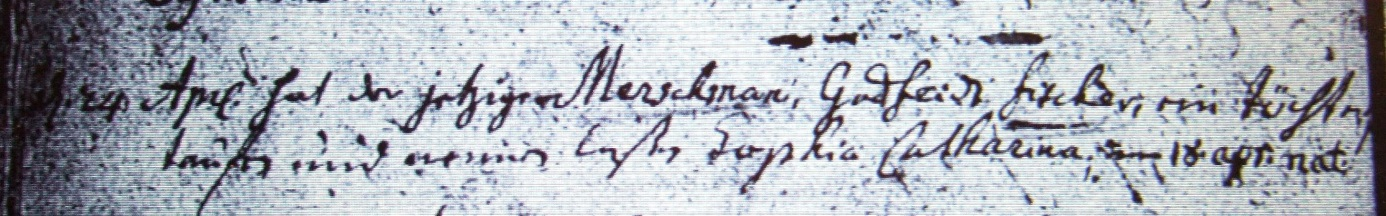 d. 24 April hat der jetziger Merschman, Godfridt Fischer, ein Töchter
taufen und nennen lassen Sophia Catharina, 18 apr. nat.